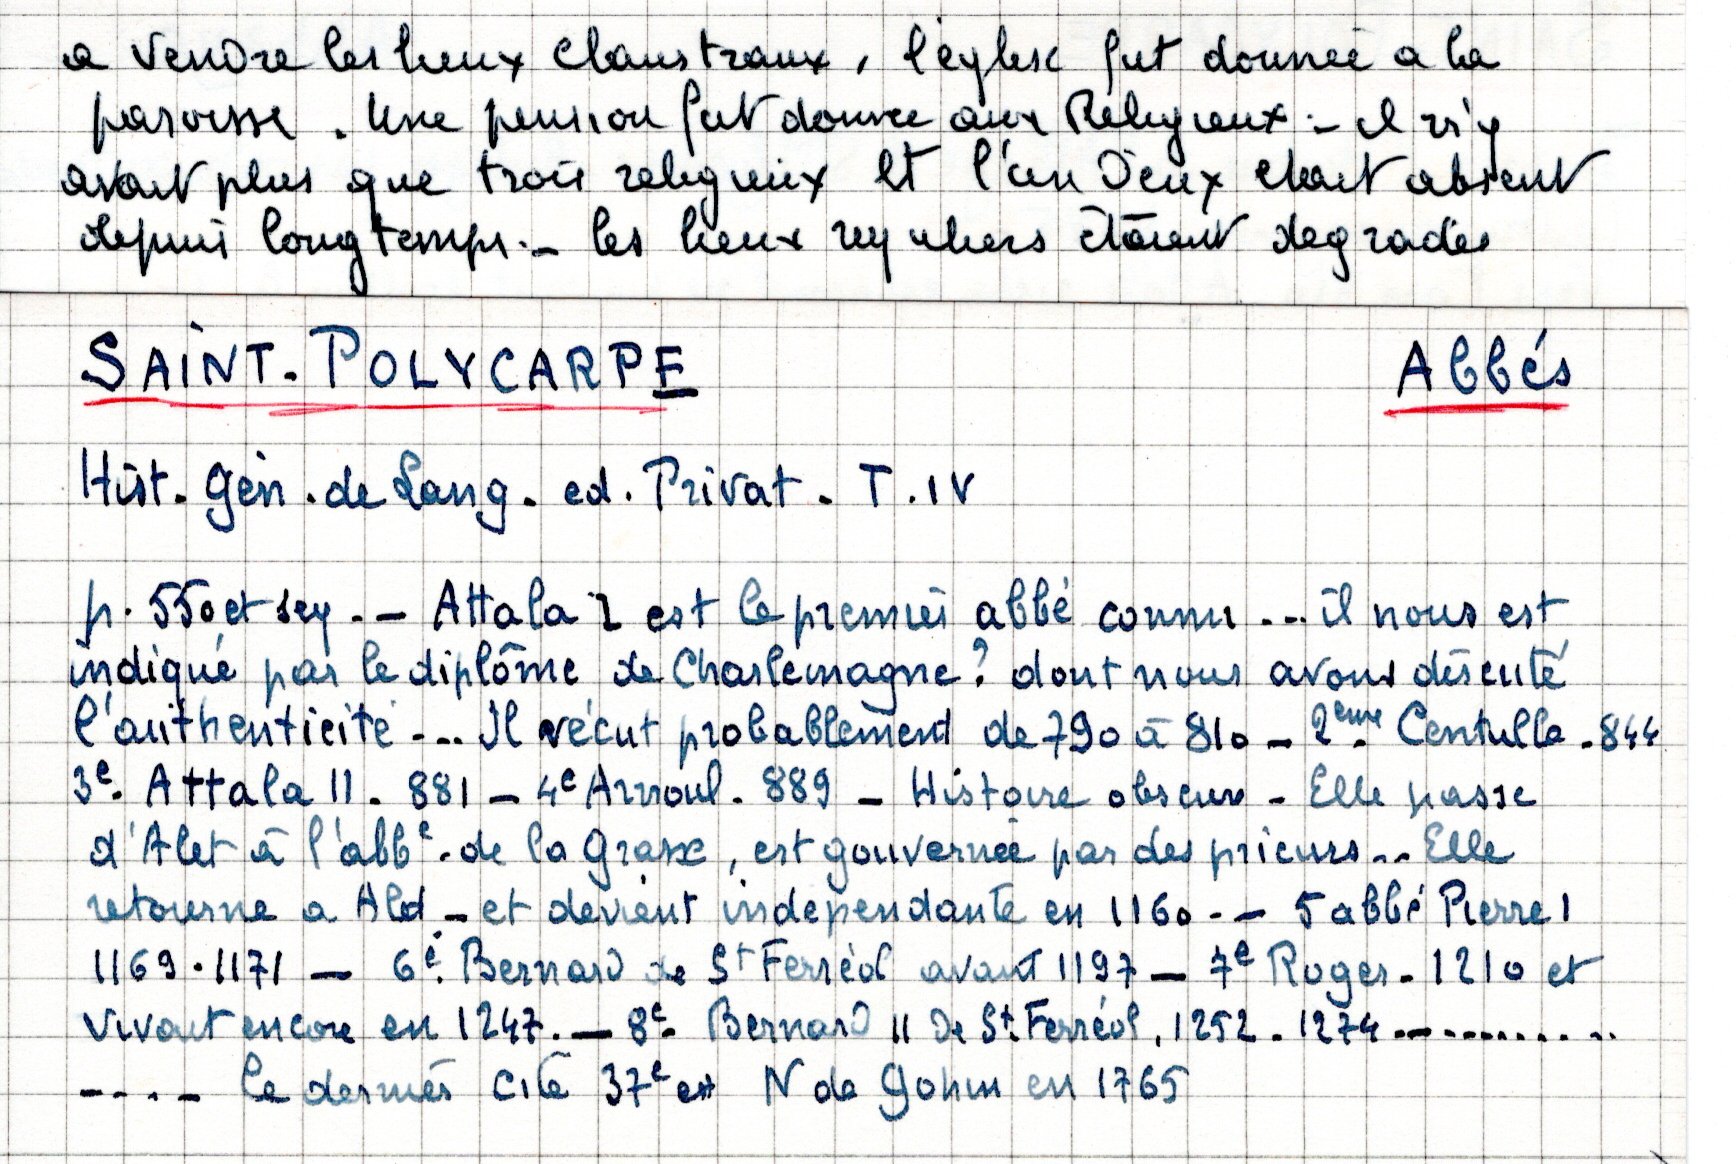 a vendre les lieux claustraux, l'église fut donnée a la
paroisse. Une pension fut donnée aux Religieux - il n'y
avait plus que trois religieux et l'un d'eux était absent
depuis longtemps. - les lieux reguliers étaient degradés
SAINT-POLYCARPE Abbés
Hist. Gén. de Lang. ed. Privat. T. IV
p. 550 et seq. - Attala I est le premier abbé connu... il nous est
indiqué par le diplôme de Charlemagne? dont nous avons discuté
l'authenticité... Il vécut probablement de 790 à 810 - 2eme. Centulle. 844
3e. Attala II. 881 - 4e Arnoul. 889 - Histoire obscure - Elle passe
d'Alet à l'abbe. de la Grasse, est gouvernée par des prieurs... Elle
retourne a Alet - et devient independante en 1160. - 5 abbé Pierre I
1169.1171 - 6e. Bernard de St Ferréol avant 1197 - 7e Roger. 1210 et
vivait encore en 1247. - 8e. Bernard II de St. Ferréol, 1252. 1274 ............
..... le dernier cité 37e est N de en 1765